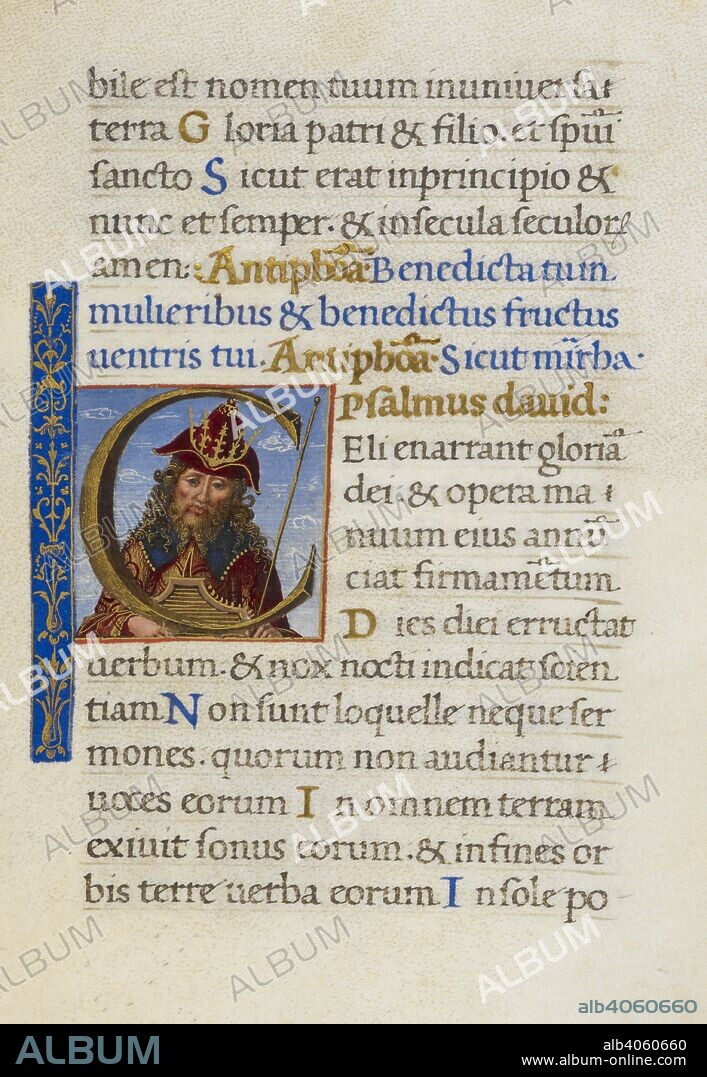 bile est nomen tuum inuniuersa
terra Gloria patri & filio. et spũi
sancto Sicut erat inprincipio &
nunc et semper. & insecula seculor
amen: Antiphõa: Benedicta tu in
mulieribus & benedictus fructus
uentris tui. Antiphõa: Sicut mirrha:
Psalmus dauid:
CEli enarrant gloriã
dei. & opera ma
nuum eius annũ
ciat firmamẽtum
Dies diei erructat
uerbum. & nox nocti indicat scien
tiam Non sunt loquelle neque ser
mones. quorum non audiantur
uoces eorum In omnem terram
exiuit sonus eorum. & infines or
bis terre uerba eorum In sole po
alb4060660
ALBUM
alb4060660
www.album-online.com